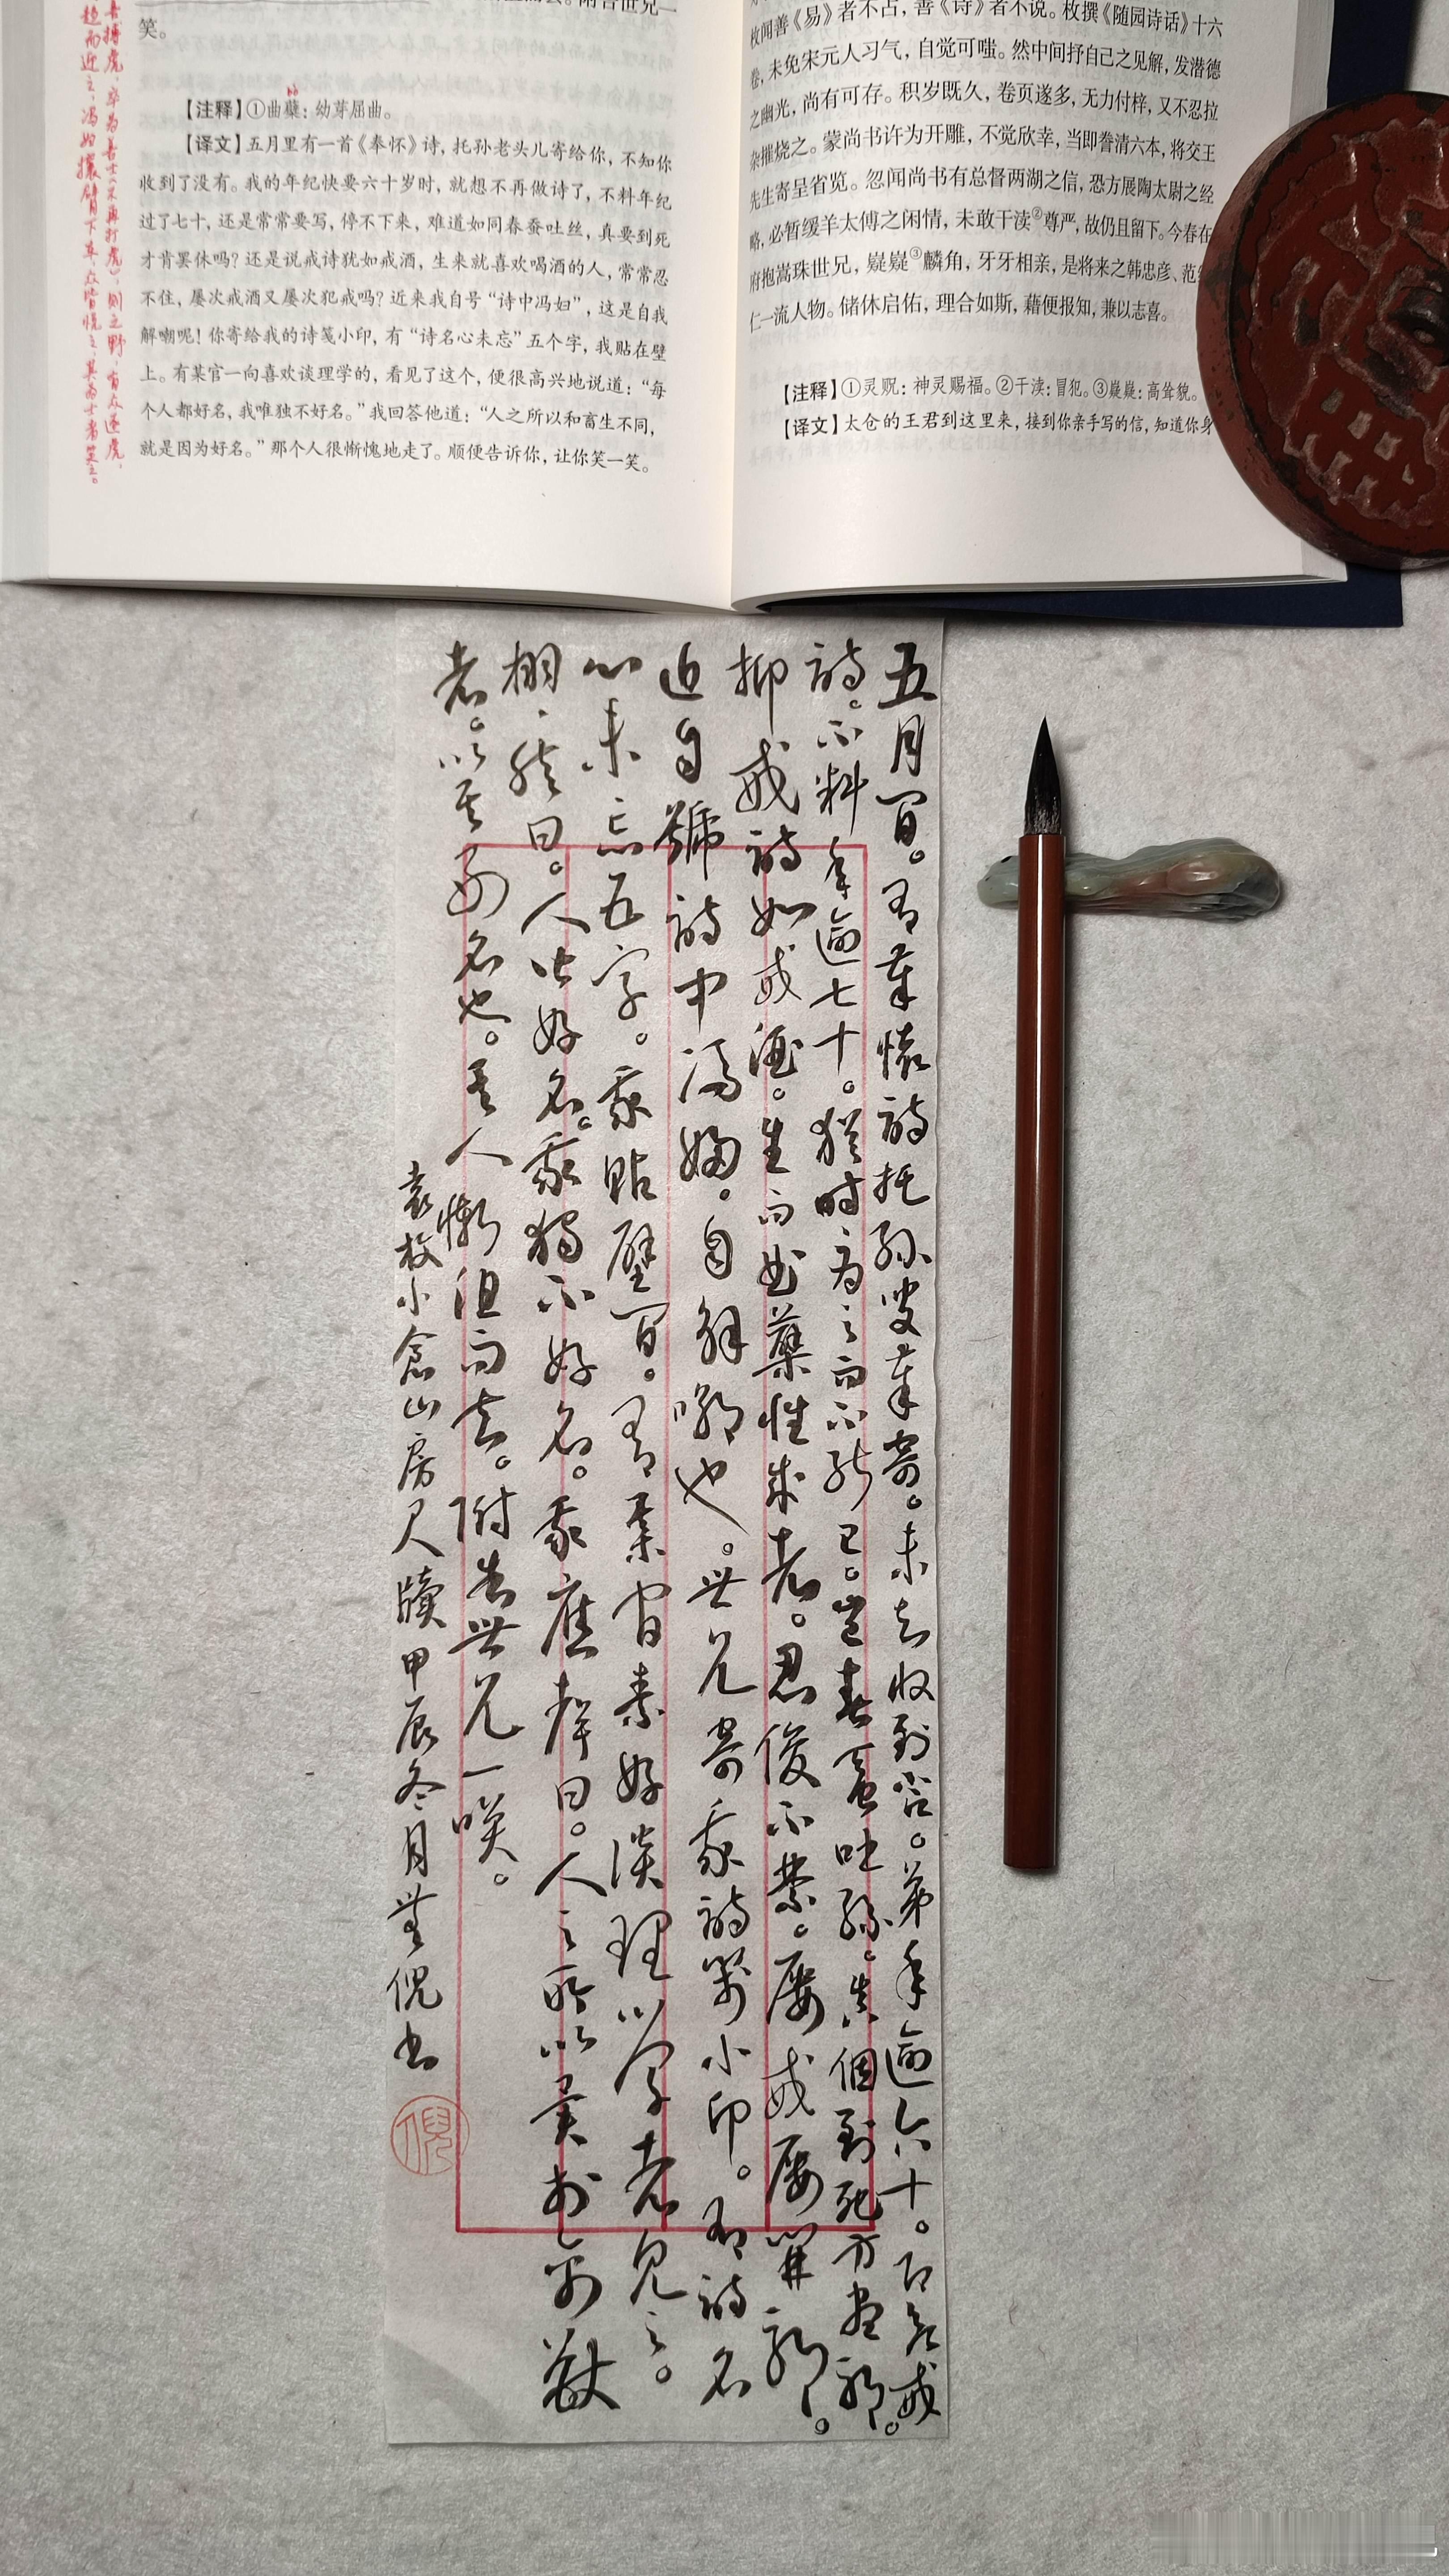 笑。
【注释】①曲糵：幼芽屈曲。
【译文】五月里有一首《奉怀》诗，托孙老头儿寄给你，不知你
收到了没有。我的年纪快要六十岁时，就想不再做诗了，不料年纪
过了七十，还是常常要写，停不下来，难道如同春蚕吐丝，真要到死
才肯罢休吗？还是说戒诗犹如戒酒，生来就喜欢喝酒的人，常常忍
不住，屡次戒酒又屡次犯戒吗？近来我自号“诗中冯妇”，这是自我
解嘲呢！你寄给我的诗笺小印，有“诗名心未忘”五个字，我贴在壁
上。有某官一向喜欢谈理学的，看见了这个，便很高兴地说道：“每
个人都好名，我唯独不好名。”我回答他道：“人之所以和畜生不同，
就是因为好名。”那个人很惭愧地走了。顺便告诉你，让你笑一笑。
善搏虎，卒为善士（不再打虎），则之野，有众逐虎，
趋而迎之，冯妇攘臂下车，众皆悦之，其为士者笑之。
枚闻善《易》者不占，善《诗》者不说。枚撰《随园诗话》十六
卷，未免宋元人习气，自觉可嗤。然中间抒自己之见解，发潜德
之幽光，尚有可存。积岁既久，卷页遂多，无力付梓，又不忍拉
杂摧烧之。蒙尚书许为开雕，不觉欣幸，当即誊清六本，将交王
先生寄呈省览。忽闻尚书有总督两湖之信，恐方展陶太尉之经
略，必暂缓羊太傅之闲情，未敢干渎②尊严，故仍且留下。今春在
府抱嵩珠世兄，嶷嶷③麟角，牙牙相亲，是将来之韩忠彦、范纯
仁一流人物。储休启佑，理合如斯，藉便报知，兼以志喜。
【注释】①灵贶：神灵赐福。②干渎：冒犯。③嶷嶷：高耸貌。
【译文】太仓的王君到这里来，接到你亲手写的信，知道你身
五月间。有奉懷詩托孫叟奉寄。未知收到否。弟年逾六十。即思戒
詩。不料年逾七十。猶時時為之而不能已。豈春蠶吐絲。真個到死方盡耶。
抑戒詩如戒酒。生而曲糵性成者。忍俊不禁。屡戒屡開耶。
近自號詩中馮婦。自解嘲也。世兄寄我詩箋小印。有詩名
心未忘五字。我貼壁間。有某官素好談理學者見之。
栩栩然曰。人皆好名。我獨不好名。我應聲曰。人之所以異於禽獸
者。以其好名也。其人慚沮而去。附告世兄一笑。
袁枚小倉山房尺牘 甲辰冬月 無倪书
倪